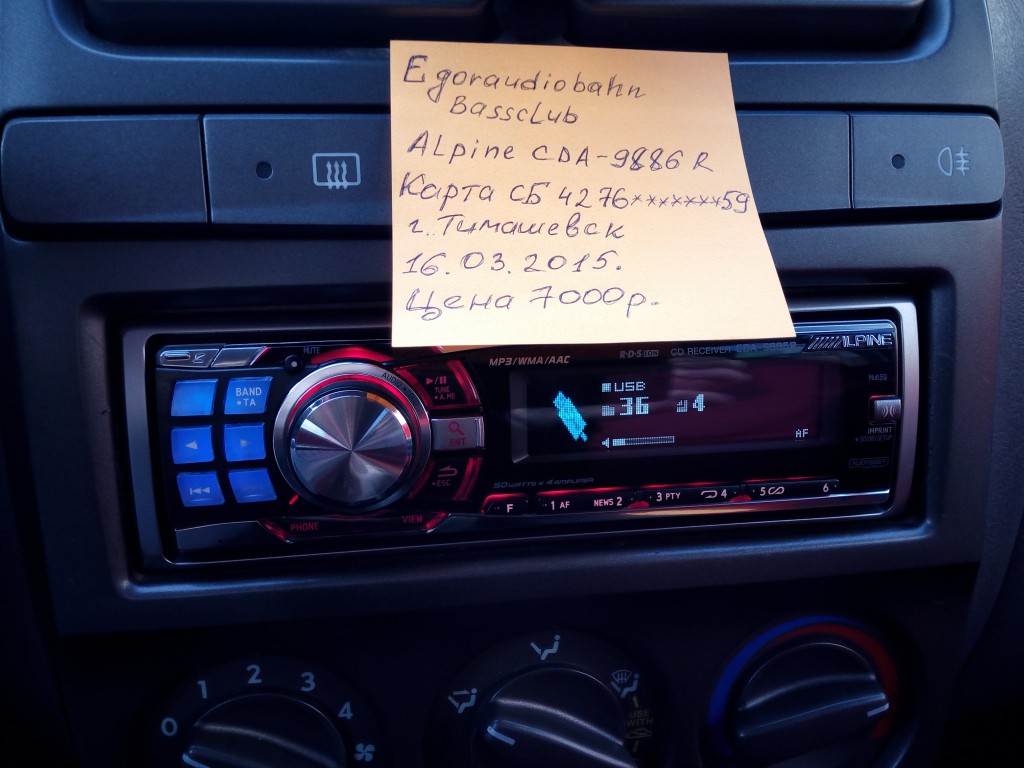 Egoraudiobahn
Bassclub
Alpine CDA-9886R
Карта СБ 4276*******59
г. Тимашевск
16.03.2015.
Цена 7000р.
MUTE
MP3/WMA/AAC
R·D·S EON
CD RECEIVER CDA-9886R
ALPINE
BAND
•TA
AUDIO
TUNE
•A.ME
ENT
•ESC
USB
36 4
AF
IMPRINT
50WATTS x 4 AMPLIFIER
F 1 AF NEWS 2 3 PTY 4 5 6
PHONE VIEW
0 1 2 3 4
USE
WITH